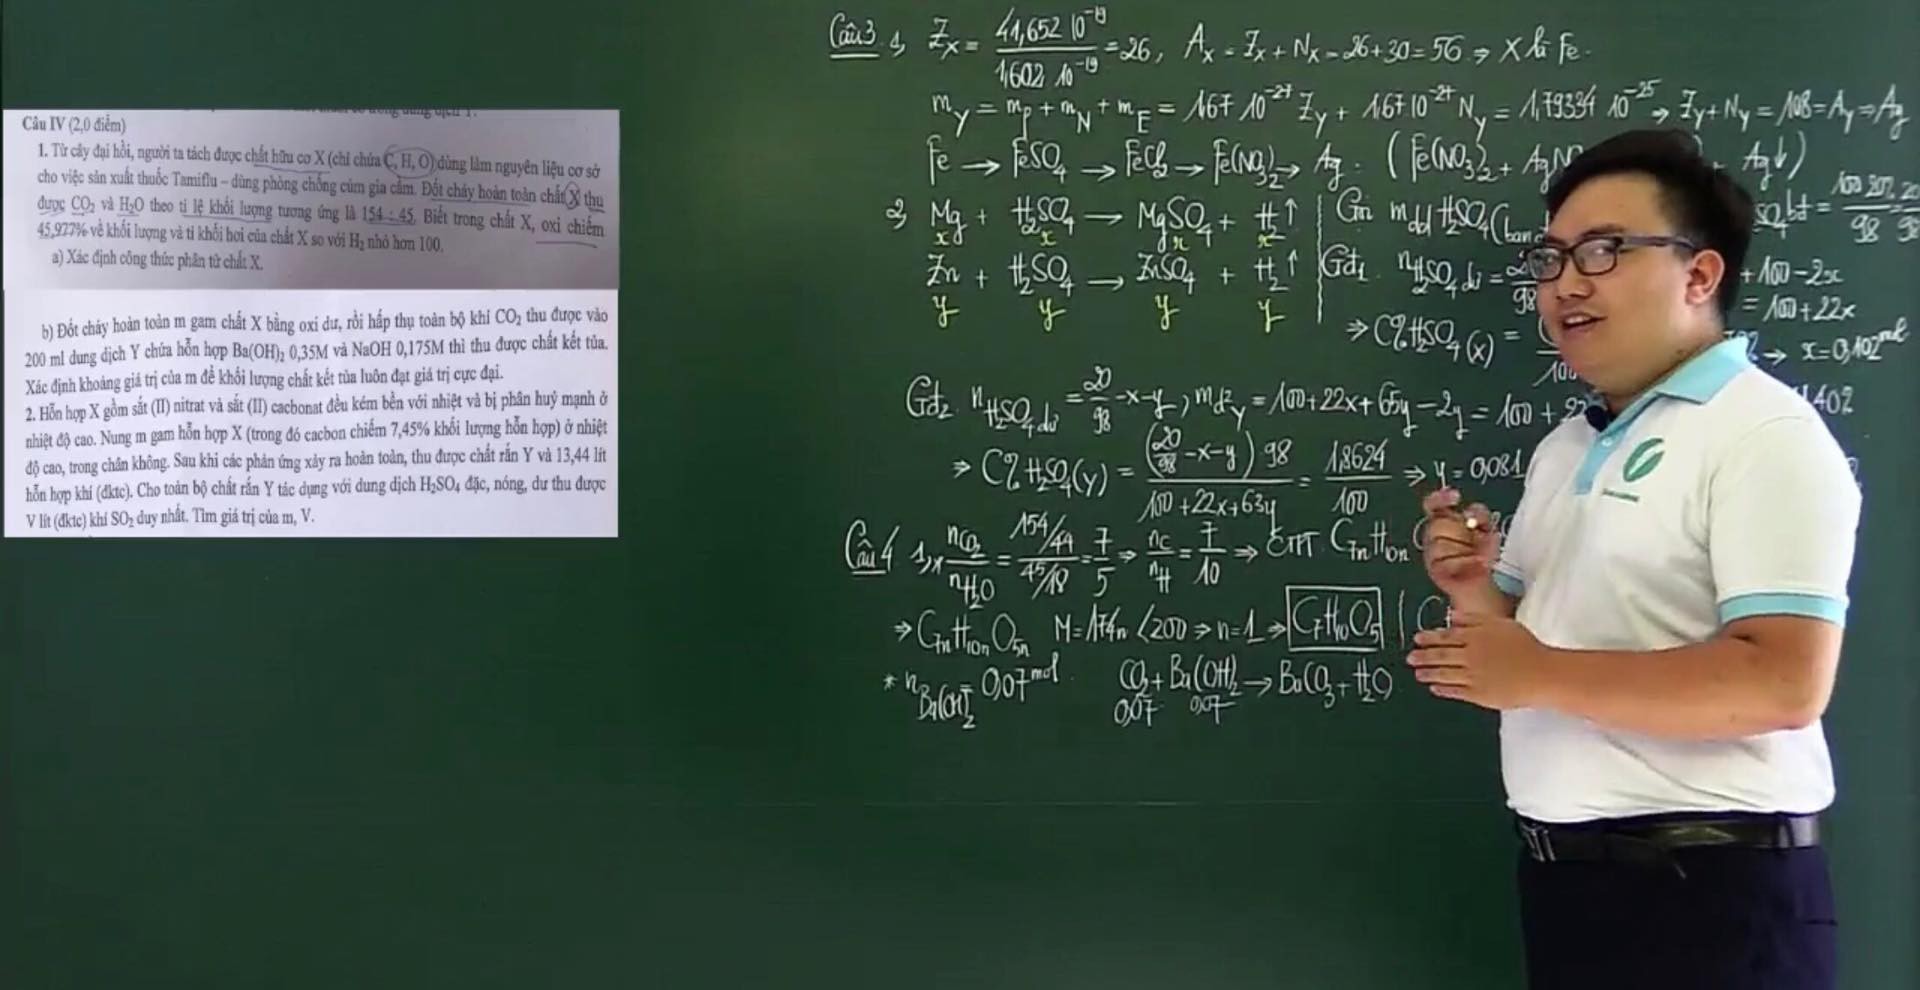 Câu IV (2,0 điểm)
1. Từ cây đại hồi, người ta tách được chất hữu cơ X (chỉ chứa C, H, O) dùng làm nguyên liệu cơ sở
cho việc sản xuất thuốc Tamiflu – dùng phòng chống cúm gia cầm. Đốt cháy hoàn toàn chất X thu
được CO₂ và H₂O theo tỉ lệ khối lượng tương ứng là 154 : 45. Biết trong chất X, oxi chiếm
45,977% về khối lượng và tỉ khối hơi của chất X so với H₂ nhỏ hơn 100.
a) Xác định công thức phân tử chất X.
b) Đốt cháy hoàn toàn m gam chất X bằng oxi dư, rồi hấp thụ toàn bộ khí CO₂ thu được vào
200 ml dung dịch Y chứa hỗn hợp Ba(OH)₂ 0,35M và NaOH 0,175M thì thu được chất kết tủa.
Xác định khoảng giá trị của m để khối lượng chất kết tủa luôn đạt giá trị cực đại.
2. Hỗn hợp X gồm sắt (II) nitrat và sắt (II) cacbonat đều kém bền với nhiệt và bị phân huỷ mạnh ở
nhiệt độ cao. Nung m gam hỗn hợp X (trong đó cacbon chiếm 7,45% khối lượng hỗn hợp) ở nhiệt
độ cao, trong chân không. Sau khi các phản ứng xảy ra hoàn toàn, thu được chất rắn Y và 13,44 lít
hỗn hợp khí (đktc). Cho toàn bộ chất rắn Y tác dụng với dung dịch H₂SO₄ đặc, nóng, dư thu được
V lít (đktc) khí SO₂ duy nhất. Tìm giá trị của m, V.
Câu 3 1, Z_X = 41,652 10⁻¹⁹ / 1,602 10⁻¹⁹ = 26, A_X = Z_X + N_X = 26+30 = 56 ⇒ X là Fe.
m_Y = m_P + m_N + m_E = 1,67 10⁻²⁷ Z_Y + 1,67 10⁻²⁷ N_Y = 1,79334 10⁻²⁵ ⇒ Z_Y + N_Y = 108 = A_Y ⇒ Ag
Fe → FeSO₄ → FeCl₂ → Fe(NO₃)₂ → Ag : ( Fe(NO₃)₂ + + Ag↓ )
2, Mg + H₂SO₄ → MgSO₄ + H₂↑ Gọi m dd H₂SO₄ (ban
x x x x
Zn + H₂SO₄ → ZnSO₄ + H₂↑ Gđ1. n H₂SO₄ dư = + 100 - 2x
y y y y = 100 + 22x
⇒ C% H₂SO₄ (X) = → x = 0,102 mol
Gđ2. n H₂SO₄ dư = 20/98 - x - y, m d² Y = 100 + 22x + 65y - 2y = 100 +
⇒ C% H₂SO₄ (Y) = (20/98 - x - y) 98 / 100 + 22x + 63y = 1,8624 / 100 ⇒ y = 0,081
Câu 4 1, * nCO₂ / nH₂O = 154/44 / 45/18 = 7/5 ⇒ nC / nH = 7/10 ⇒ CTPT C₇ₙH₁₀ₙ
⇒ C₇ₙH₁₀ₙO₅ₙ M = 174n < 200 ⇒ n = 1 ⇒ C₇H₁₀O₅
* n Ba(OH)₂ = 0,07 mol CO₂ + Ba(OH)₂ → BaCO₃ + H₂O
0,07 0,07